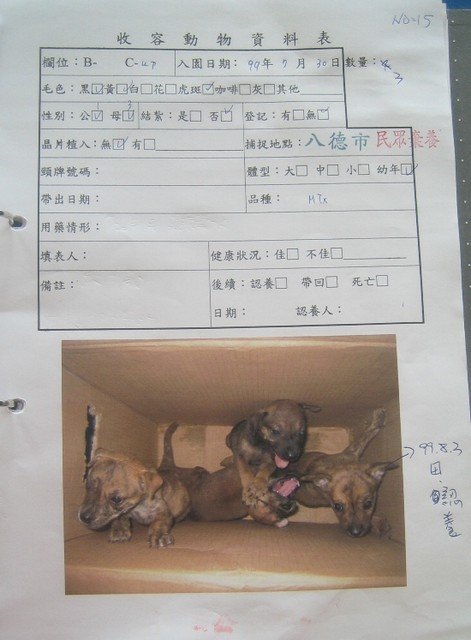 NO-15
收容動物資料表
欄位：B- C-up 入園日期：99年7月30日 數量：
毛色：黑☑黃☑白□花□虎斑☑咖啡□灰□其他
性別：公☑1 母☑3 結紮：是□ 否☑ 登記：有□無☑
晶片植入：無☑有□ 捕捉地點：八德市 民眾棄養
頸牌號碼： 體型：大□ 中□ 小□ 幼年☑
帶出日期： 品種： MIX
用藥情形：
填表人： 健康狀況：佳□ 不佳□
備註： 後續：認養□ 帶回□ 死亡□
日期： 認養人：
99.8.3
認
養